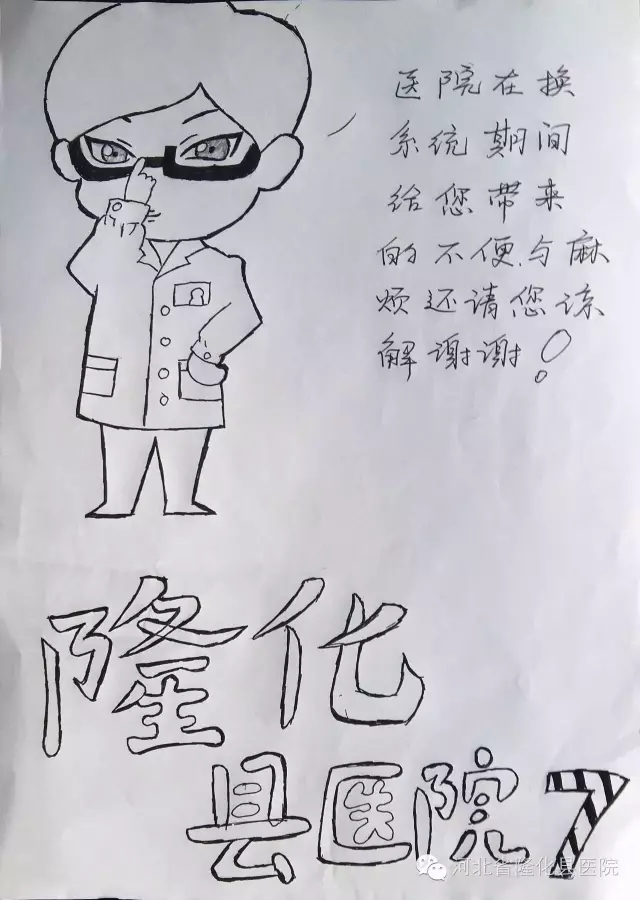 医院在换
系统期间
给您带来
的不便与麻
烦还请您谅
解谢谢！
隆化
县医院7
河北省隆化县医院